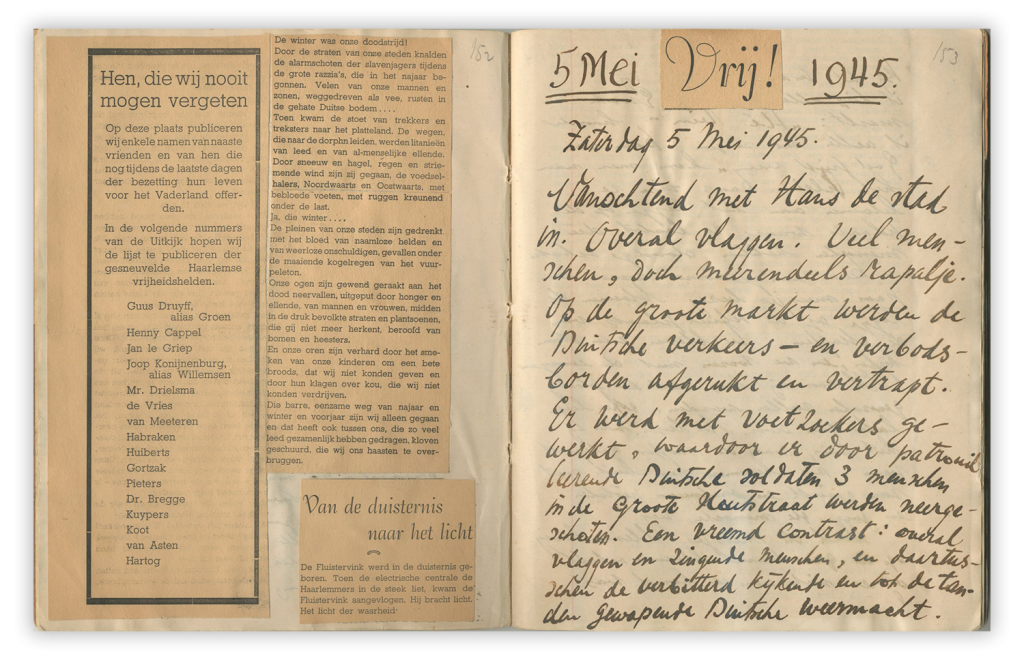 Hen, die wij nooit
mogen vergeten
Op deze plaats publiceren
wij enkele namen van naaste
vrienden en van hen die
nog tijdens de laatste dagen
der bezetting hun leven
voor het Vaderland offer-
den.
In de volgende nummers
van de Uitkijk hopen wij
de lijst te publiceren der
gesneuvelde Haarlemse
vrijheidshelden.
Guus Druyff,
alias Groen
Henny Cappel
Jan le Griep
Joop Konijnenburg,
alias Willemsen
Mr. Drielsma
de Vries
van Meeteren
Habraken
Huiberts
Gortzak
Pieters
Dr. Bregge
Kuypers
Koot
van Asten
Hartog
De winter was onze doodstrijd!
Door de straten van onze steden knalden
de alarmschoten der slavenjagers tijdens
de grote razzia's, die in het najaar be-
gonnen. Velen van onze mannen en
zonen, weggedreven als vee, rusten in
de gehate Duitse bodem....
Toen kwam de stoet van trekkers en
treksters naar het platteland. De wegen,
die naar de dorphn leiden, werden litanieën
van leed en van al-menselijke ellende.
Door sneeuw en hagel, regen en strie-
mende wind zijn zij gegaan, de voedsel-
halers, Noordwaarts en Oostwaarts, met
bebloede voeten, met ruggen kreunend
onder de last.
Ja, die winter....
De pleinen van onze steden zijn gedrenkt
met het bloed van naamloze helden en
van weerloze onschuldigen, gevallen onder
de maaiende kogelregen van het vuur-
peleton.
Onze ogen zijn gewend geraakt aan het
dood neervallen, uitgeput door honger en
ellende, van mannen en vrouwen, midden
in de druk bevolkte straten en plantsoenen,
die gij niet meer herkent, beroofd van
bomen en heesters.
En onze oren zijn verhard door het sme-
ken van onze kinderen om een bete
broods, dat wij niet konden geven en
door hun klagen over kou, die wij niet
konden verdrijven.
Die barre, eenzame weg van najaar en
winter en voorjaar zijn wij alleen gegaan
en dat heeft ook tussen ons, die zo veel
leed gezamenlijk hebben gedragen, kloven
gescheurd, die wij ons haasten te over-
bruggen.
152
Van de duisternis
naar het licht
De Fluistervink werd in de duisternis ge-
boren. Toen de electrische centrale de
Haarlemmers in de steek liet, kwam de
Fluistervink aangevlogen. Hij bracht licht.
Het licht der waarheid
153
5 Mei Vrij! 1945.
Zaterdag 5 Mei 1945.
Vanochtend met Hans de stad
in. Overal vlaggen. Veel men-
schen, doch meerendeels rapalje.
Op de groote markt werden de
Duitsche verkeers- en verbods-
borden afgerukt en vertrapt.
Er werd met voetzoekers ge-
werkt, waardoor er door patrouil
leerende Duitsche soldaten 3 menschen
in de Groote Houtstraat werden neerge-
schoten. Een vreemd contrast: overal
vlaggen en zingende menschen, en daartus-
schen de verbitterd kijkende en tot de tan-
den gewapende Duitsche weermacht.